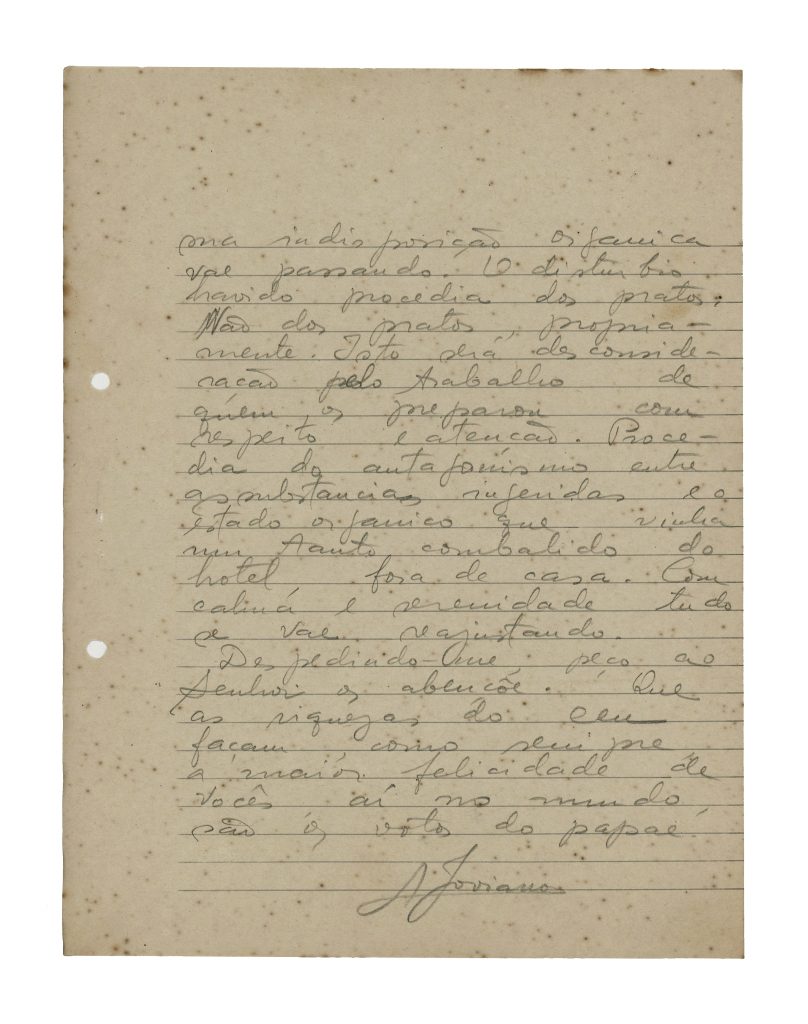 ma indisposição organica
vae passando. O disturbio
havido procedia dos pratos.
Não dos pratos, propria-
mente. Isto será desconside-
ração pelo trabalho de
quem os preparou com
respeito e atenção. Proce-
dia do antagonismo entre
as substancias ingeridas e o
estado organico que vinha
um tanto combalido do
hotel, fora de casa. Com
calma e serenidade tudo
se vae reajustando.
Despedindo-me, peço ao
Senhor os abençõe. Que
as riquezas do ceu
façam, como sempre,
a maior felicidade de
vocês aí no mundo,
são os votos do papae,
A Joviano